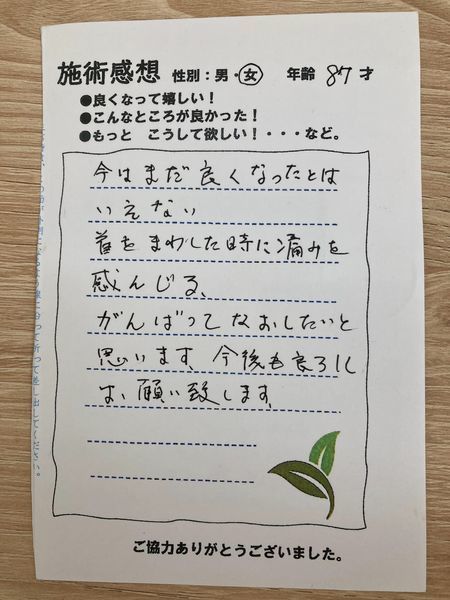 施術感想 性別：男・女 年齢 87才
●良くなって嬉しい！
●こんなところが良かった！
●もっと こうして欲しい！・・・など。
今はまだ良くなったとは
いえない
首をまわした時に痛みを
感んじる、
がんばってなおしたいと
思います、今後も良ろし
お願い致します、
ご協力ありがとうございました。